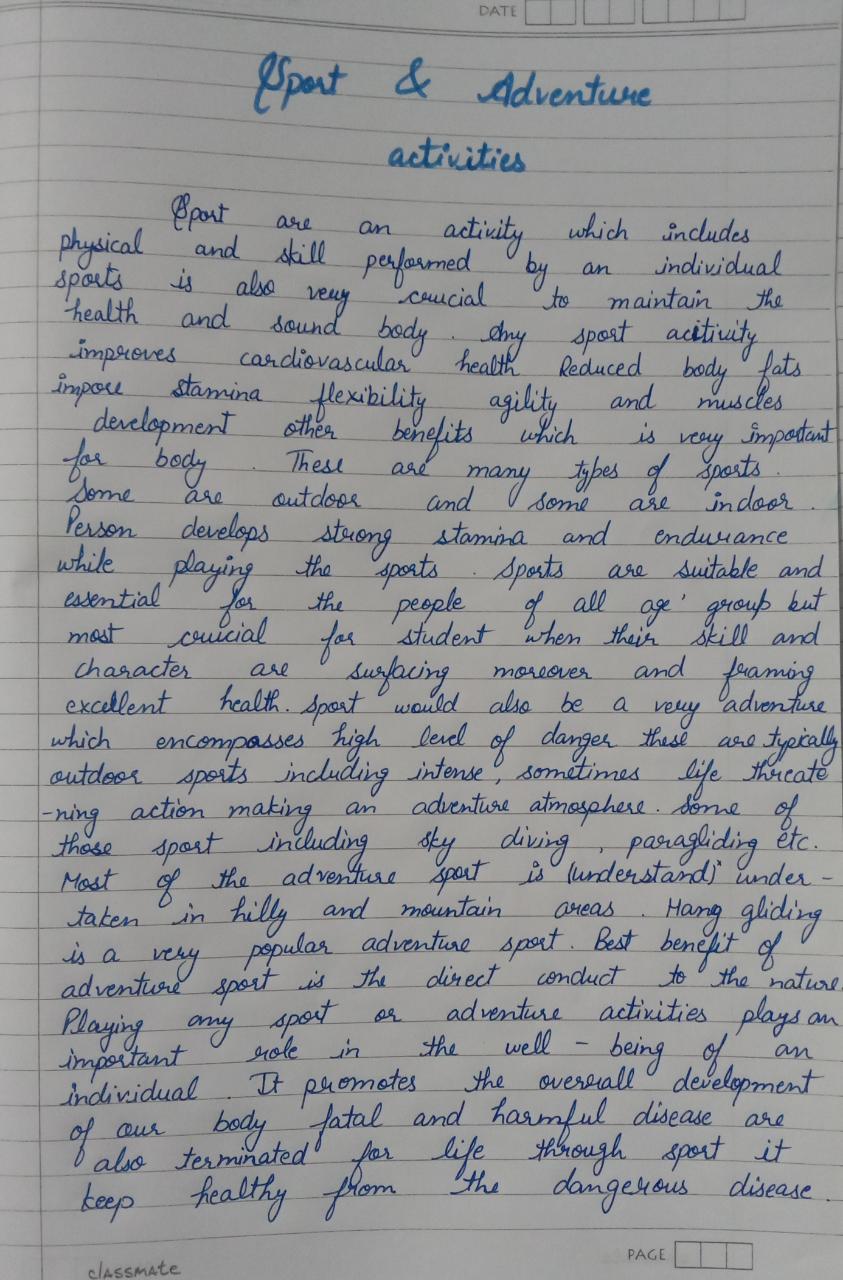 DATE
Sport & Adventure
activities
Sport are an activity which includes
physical and skill performed by an individual
sports is also very crucial to maintain the
health and sound body. Any sport acitivity
improves cardiovascular health Reduced body fats
impore stamina flexibility agility and muscles
development other benefits which is very important
for body. These are many types of sports.
Some are outdoor and some are indoor.
Person develops strong stamina and endurance
while playing the sports. Sports are suitable and
essential for the people of all age' group but
most cruicial for student when their skill and
character are surfacing moreover and framing
excellent health. Sport would also be a very adventure
which encompasses high level of danger these are typically
outdoor sports including intense, sometimes life threate
-ning action making an adventure atmosphere. Some of
those sport including sky diving, paragliding etc.
Most of the adventure sport is (understand) under-
taken in hilly and mountain areas. Hang gliding
is a very popular adventure sport. Best benefit of
adventure sport is the direct conduct to the nature
Playing any sport or adventure activities plays an
important role in the well-being of an
individual. It promotes the overall development
of our body fatal and harmful disease are
also terminated for life through sport it
keep healthy from the dangerous disease.
PAGE
classmate